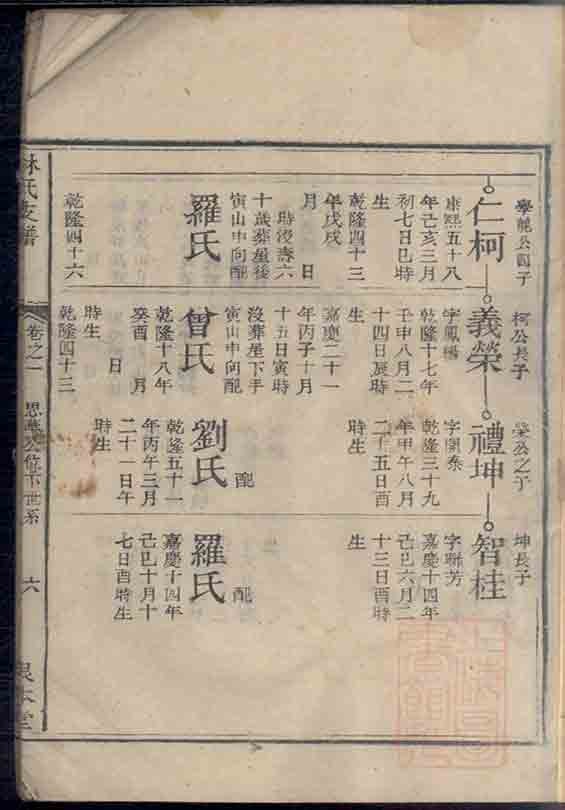 學龍公四子
仁柯
康熙五十八
年己亥三月
初七日巳時
生
乾隆四十三
年戊戌
月 日
時没壽六
十歲葬屋後
寅山申向配
羅氏
乾隆四十六
柯公長子
義榮
字鳳
乾隆十七年
壬申八月二
十四日辰時
生
嘉慶二十一
年丙子十月
十五日寅時
没葬屋下手
寅山申向配
曾氏
乾隆十八年
癸酉 月
日
時生
乾隆四十三
榮公之子
禮坤
字開泰
乾隆三十九
年甲午八月
二十五日酉
時生
配
劉氏
乾隆五十一
年丙午三月
二十一日午
時生
坤長子
智桂
字聯芳
嘉慶十四年
己巳六月二
十三日酉時
生
配
羅氏
嘉慶十四年
己巳十月十
七日酉時生
林氏支譜
卷之一
思華公位下世系
六
本堂